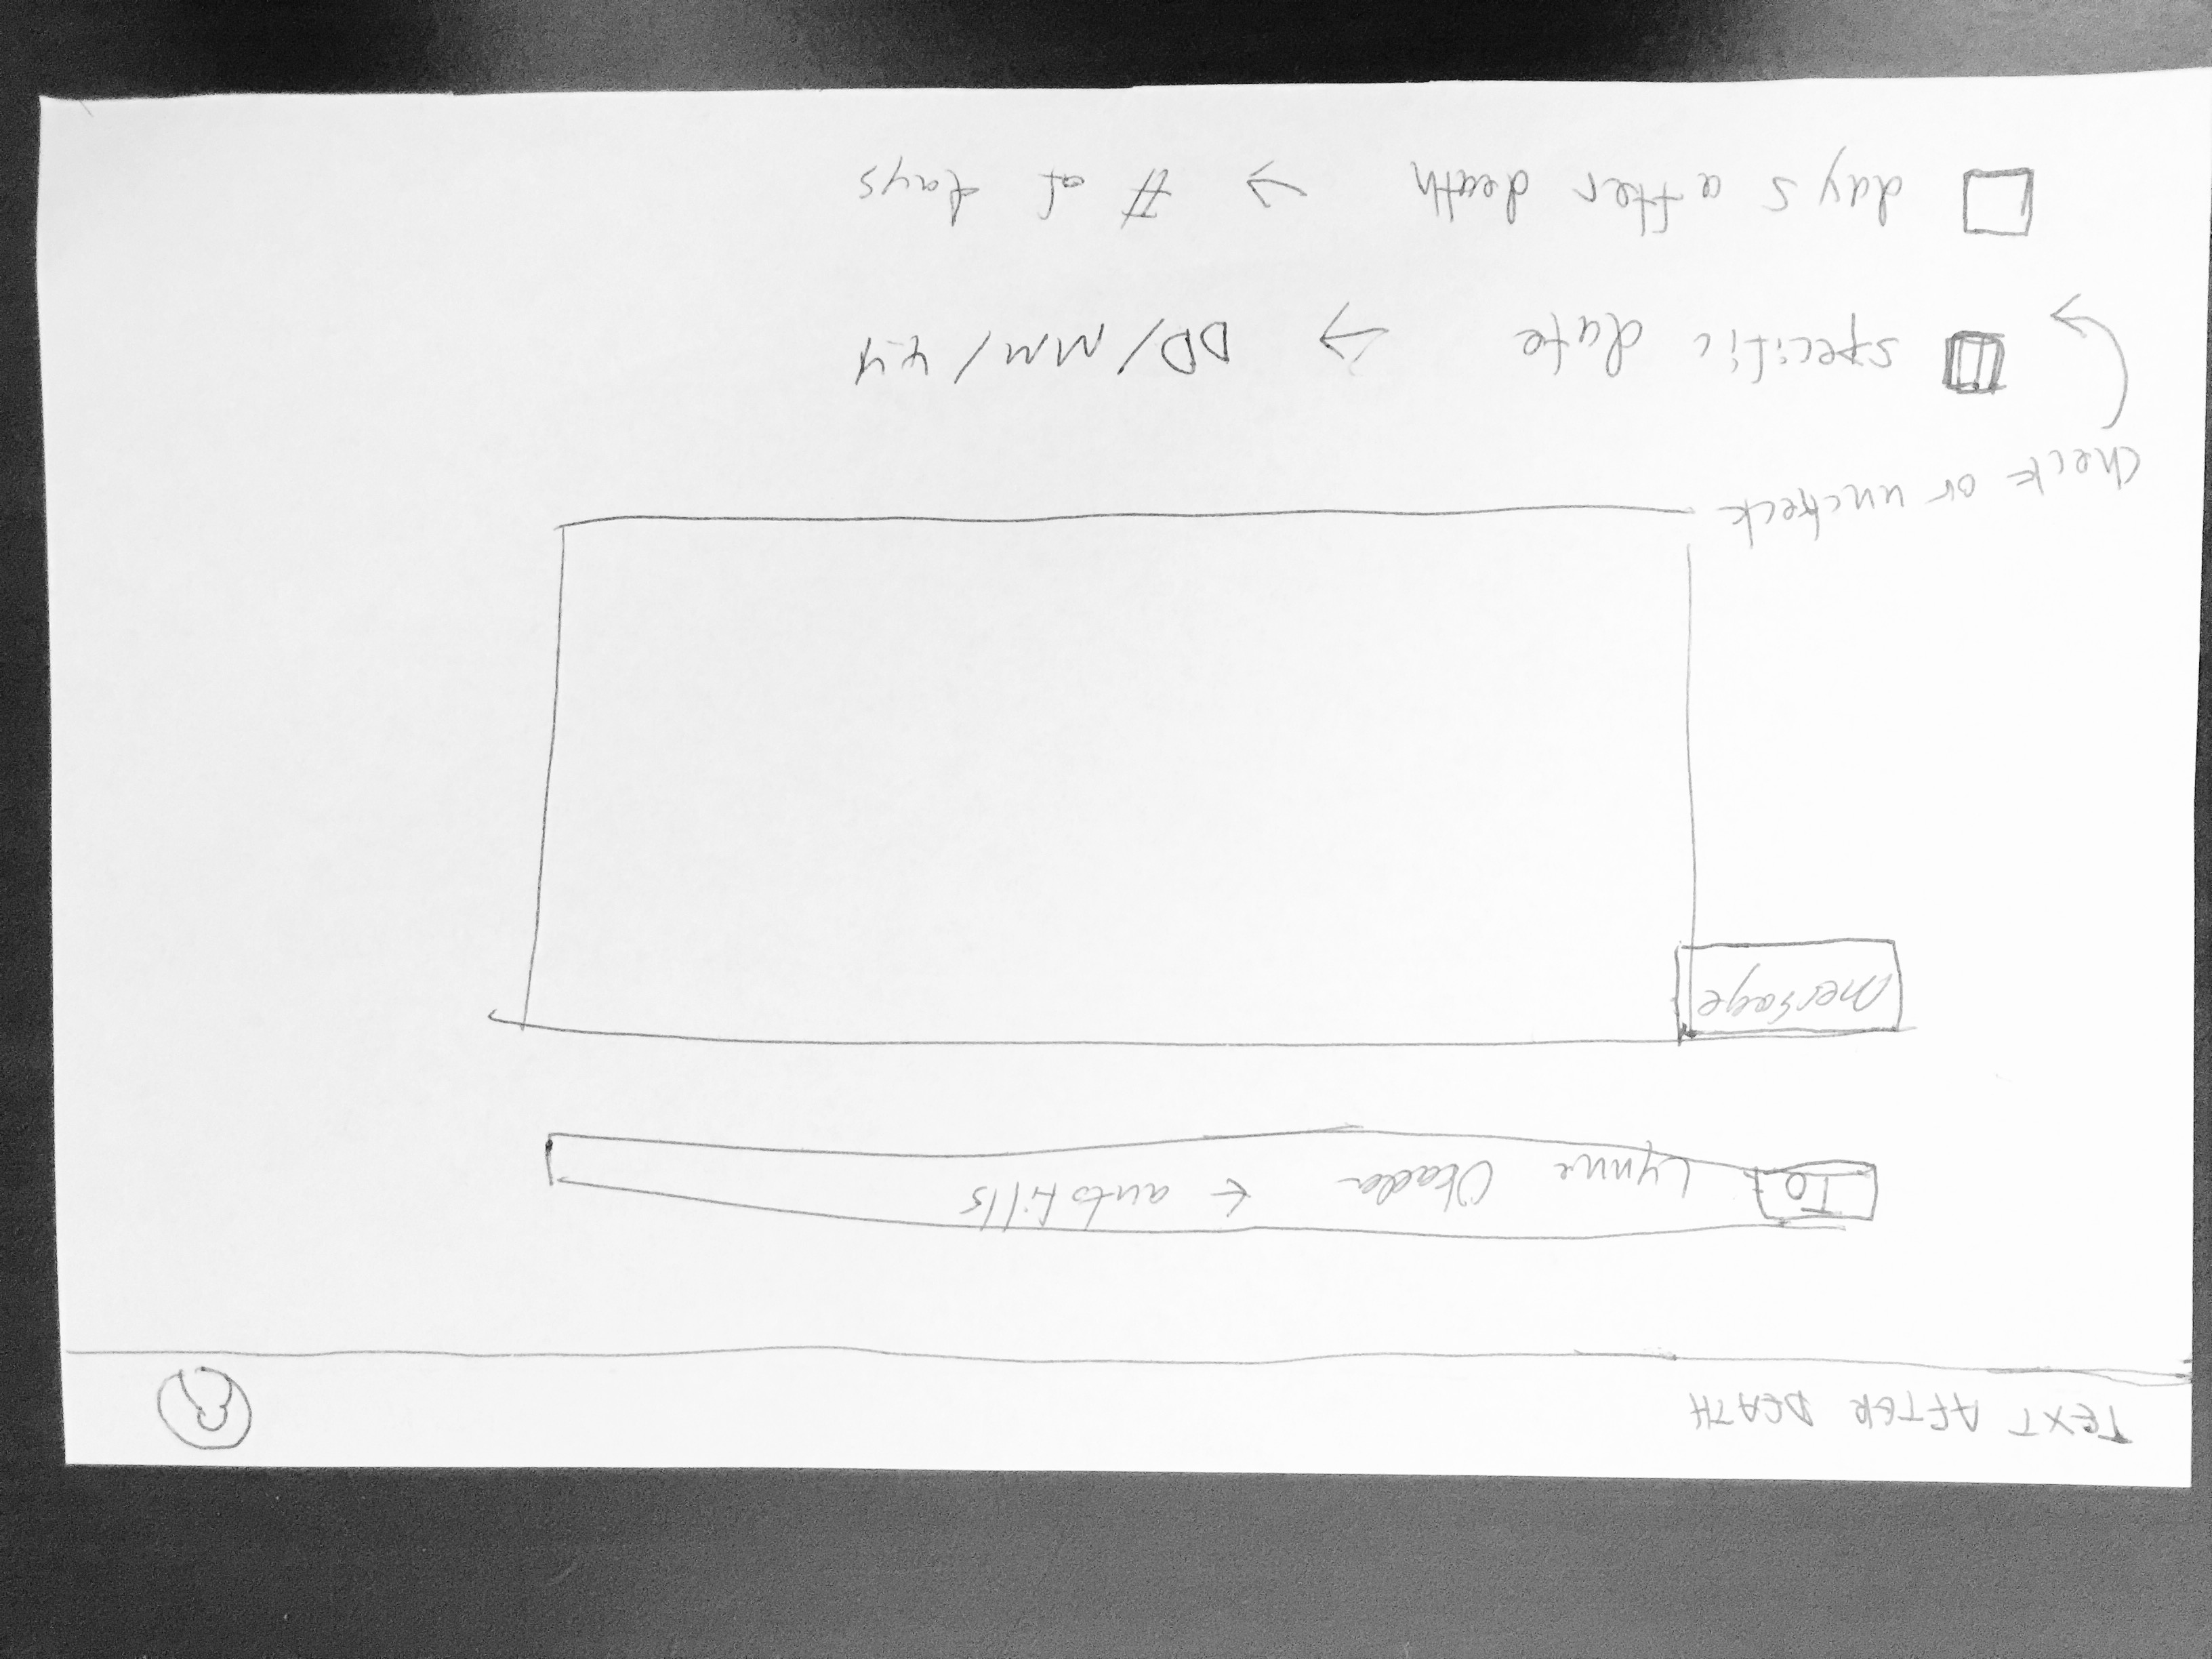 TEXT AFTER DEATH
To Lynne Okada ← autofills
message
check or uncheck
specific date → DD/MM/YY
days after death → # of days